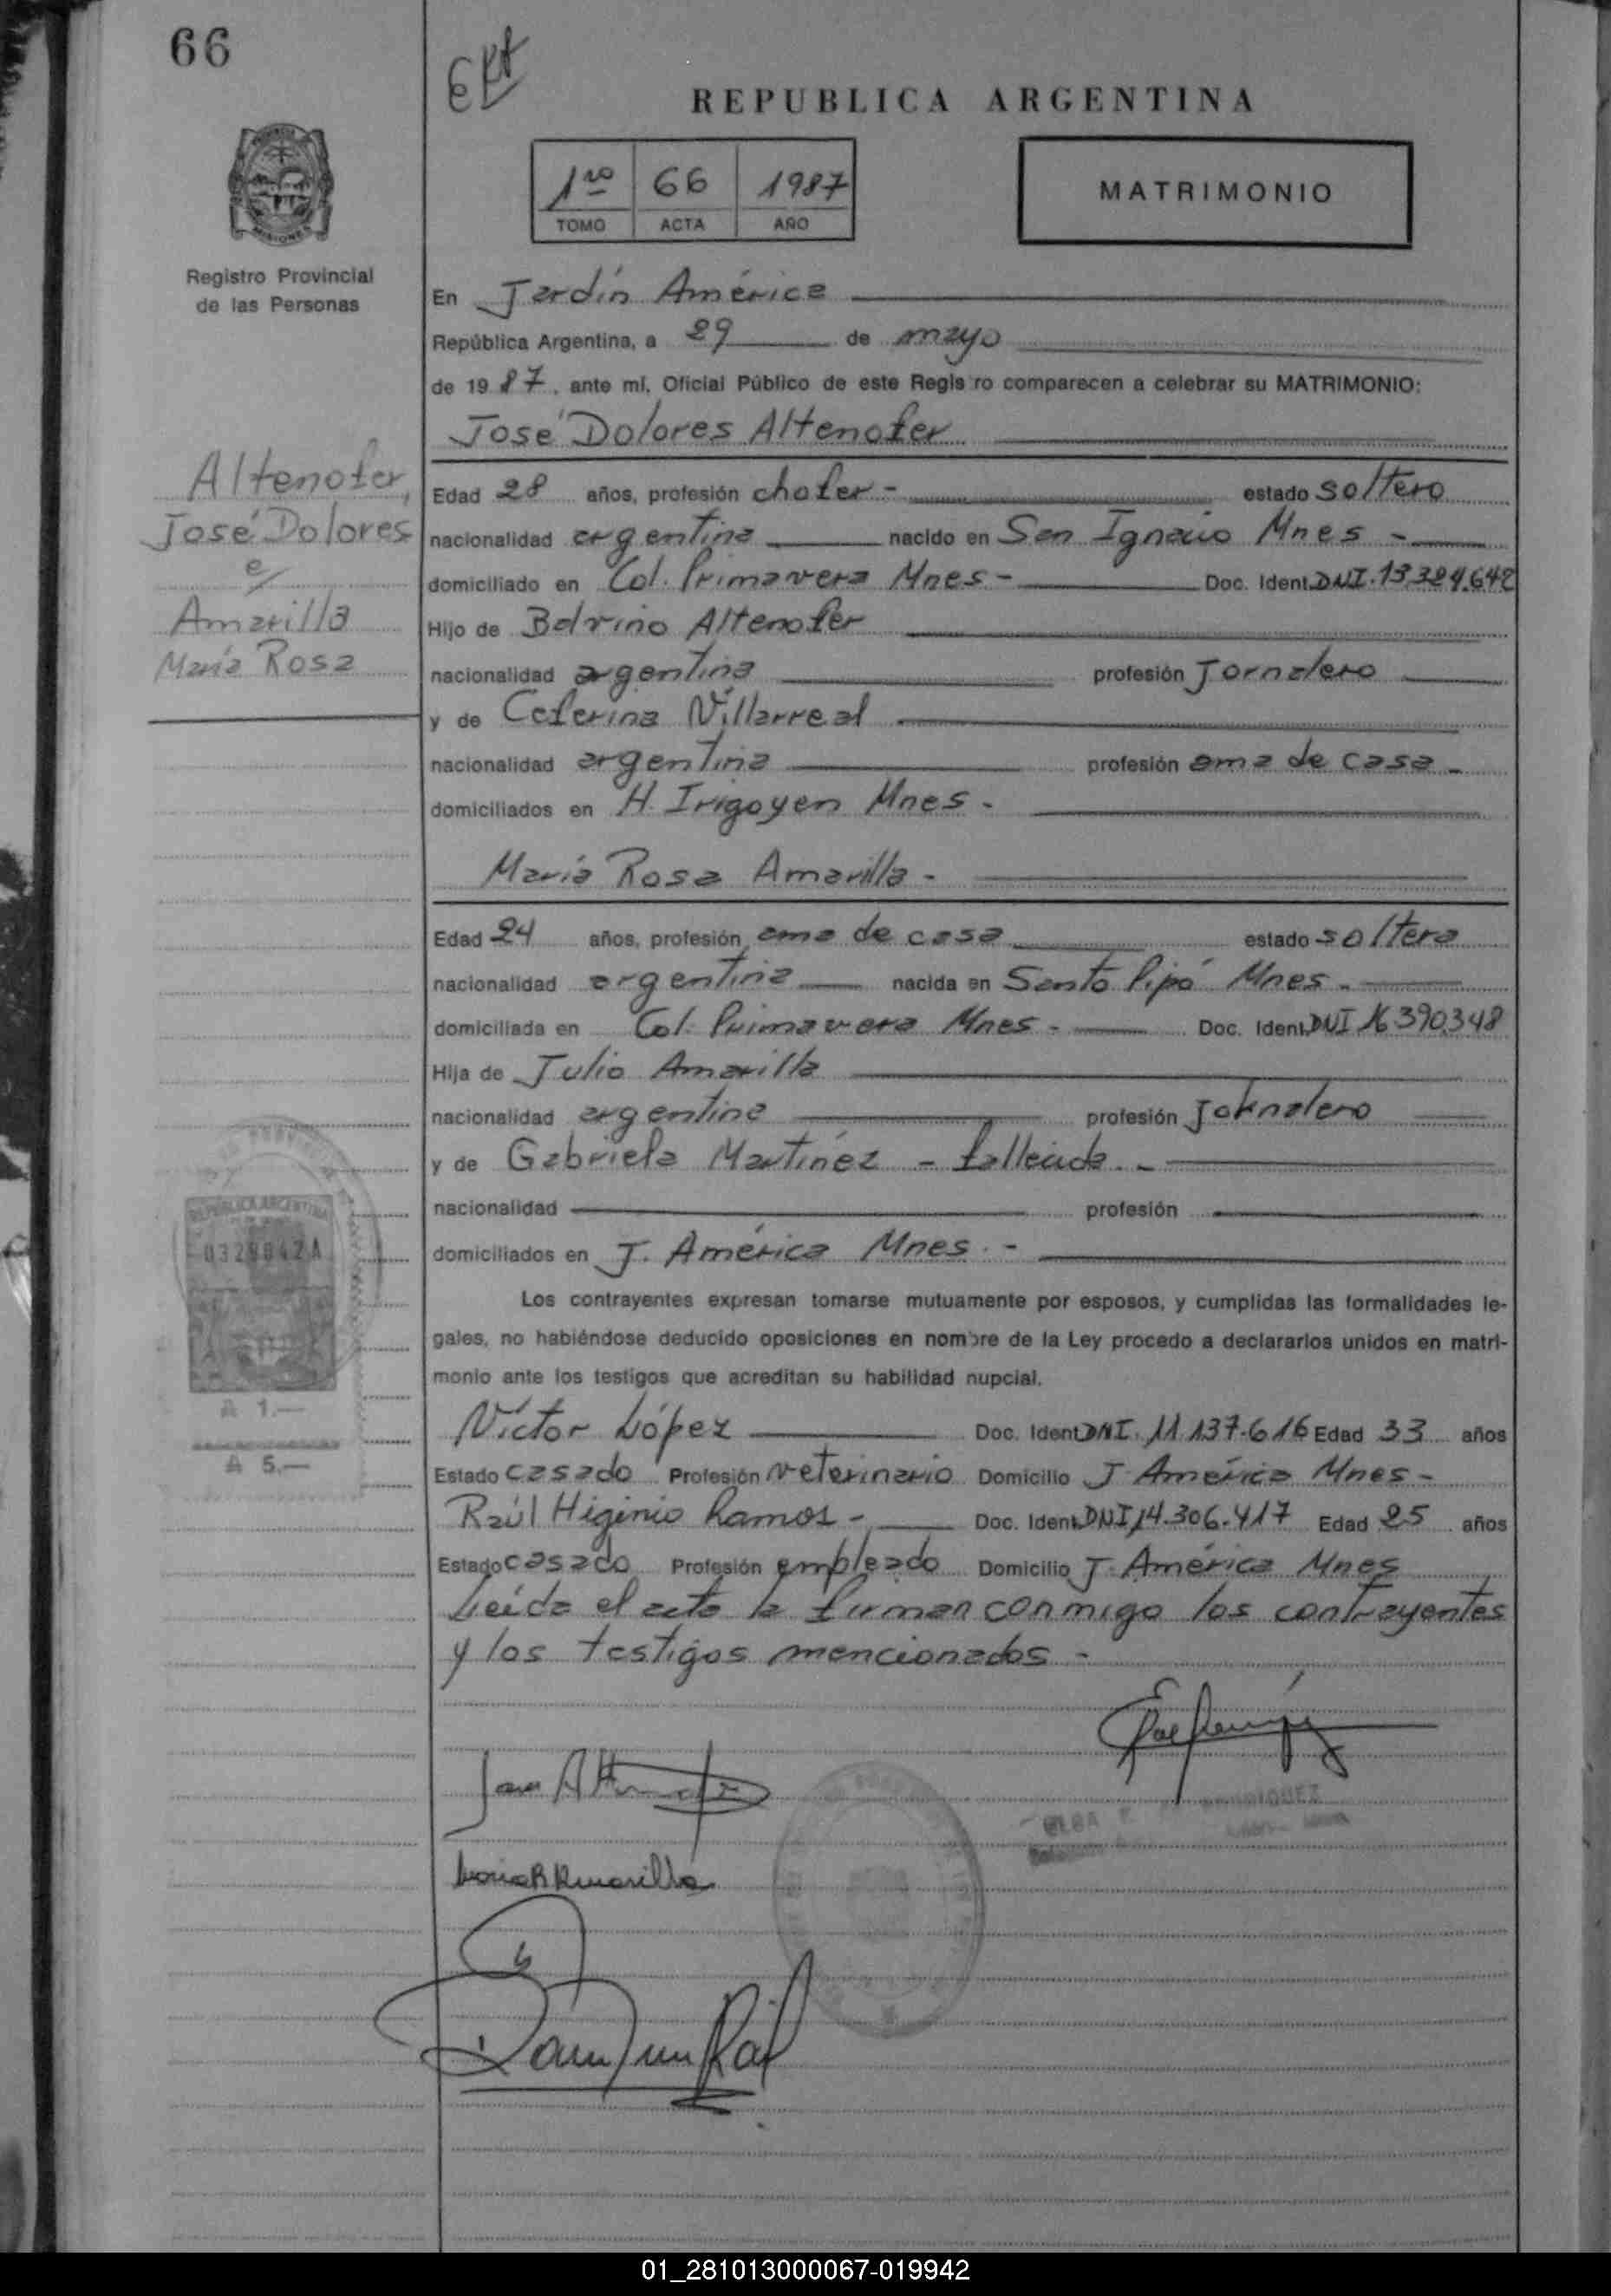 66
REPUBLICA ARGENTINA
1ro 66 1987
TOMO ACTA AÑO
MATRIMONIO
MISIONES
Registro Provincial
de las Personas
En Jardín América
República Argentina, a 29 de mayo
de 1987, ante mí, Oficial Público de este Regis ro comparecen a celebrar su MATRIMONIO:
José Dolores Altenofer
Altenofer,
José Dolores
c/
Amarilla
María Rosa
Edad 28 años, profesión chofer - estado soltero
nacionalidad argentina nacido en San Ignacio Mnes -
domiciliado en Col. Primavera Mnes - Doc. Ident. DNI.
Hijo de Altenofer
nacionalidad argentina profesión Jornalero
y de Ceferina Villarreal
nacionalidad argentina profesión ama de casa -
domiciliados en H. Irigoyen Mnes -
María Rosa Amarilla -
Edad 24 años, profesión ama de casa estado soltera
nacionalidad argentina nacida en Santo Pipó Mnes -
domiciliada en Col. Primavera Mnes - Doc. Ident. DNI 16.390.348
Hija de Julio Amarilla
nacionalidad argentina profesión Jornalero
y de Gabriela Martínez - fallecida -
nacionalidad profesión
domiciliados en J. América Mnes. -
REPUBLICA ARGENTINA
A 1.—
A 5.—
Los contrayentes expresan tomarse mutuamente por esposos, y cumplidas las formalidades le-
gales, no habiéndose deducido oposiciones en nombre de la Ley procedo a declararlos unidos en matri-
monio ante los testigos que acreditan su habilidad nupcial.
Víctor López Doc. Ident. DNI. 11.137.616 Edad 33 años
Estado casado Profesión veterinario Domicilio J. América Mnes -
Raúl Higinio Ramos - Doc. Ident. DNI 14.306.417 Edad 25 años
Estado casado Profesión empleado Domicilio J. América Mnes
Leída el acta la firman conmigo los contrayentes
y los testigos mencionados -
ELBA
Maria R Amarilla
01_281013000067-019942